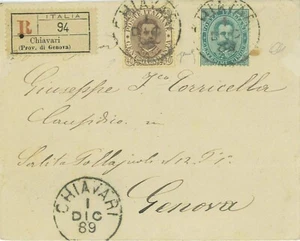 ITALIA
R
94
Chiavari
(Prov. di Genova)
CHIAVARI
Giuseppe Fco Torricella
Causidico in
Salita Pollajuoli N 12 P. 1º
Genova
CHIAVARI
1
DIC
89